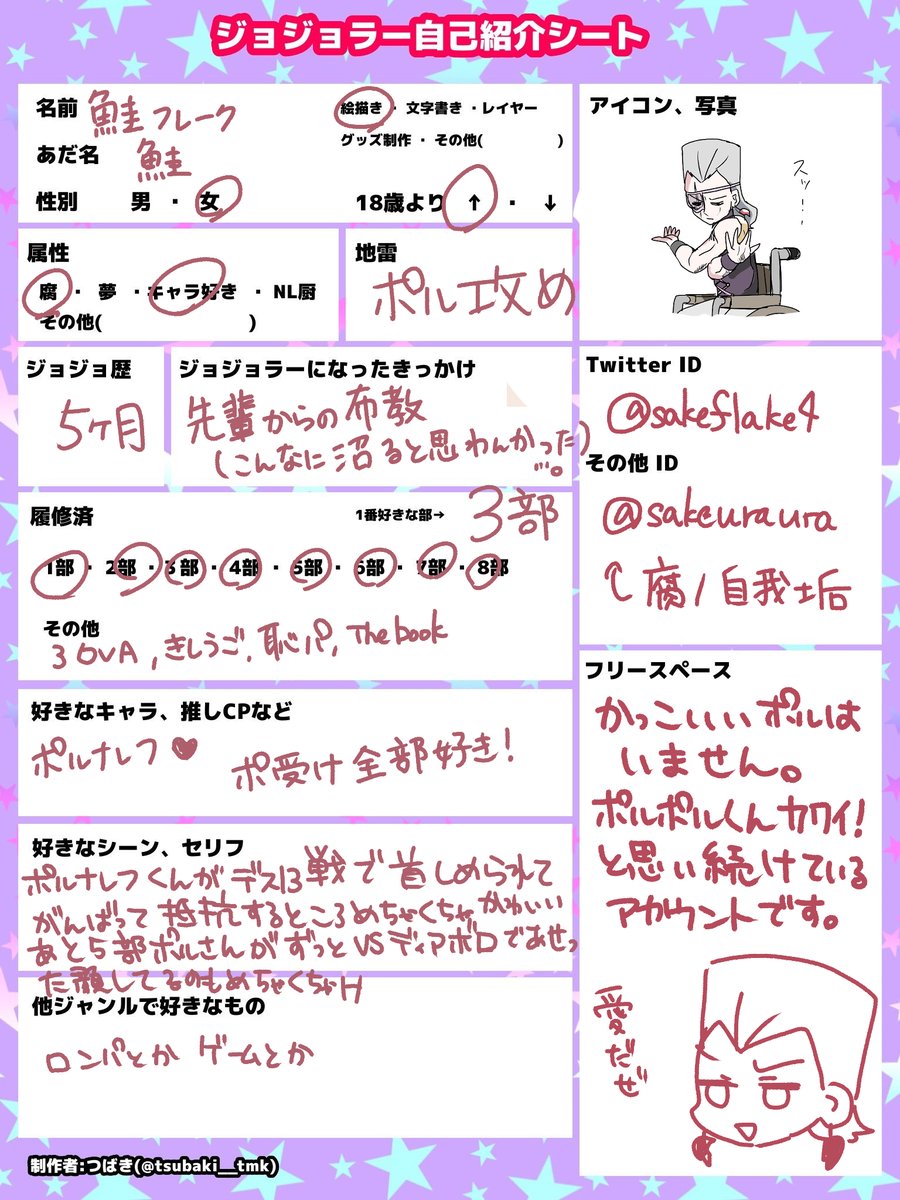 ジョジョラー自己紹介シート
名前 鮭フレーク
絵描き ・ 文字書き ・レイヤー
グッズ制作 ・ その他( )
あだ名 鮭
性別 男 ・ 女
18歳より ↑ ・ ↓
属性
腐 ・ 夢 ・キャラ好き ・ NL厨
その他( )
地雷
ポル攻め
ジョジョ歴
5ヶ月
ジョジョラーになったきっかけ
先輩からの布教
(こんなに沼ると思わんかった)
…。
履修済
1番好きな部→ 3部
1部 ・ 2部 ・3部 ・4部 ・ 5部 ・ 6部 ・ 7部 ・ 8部
その他
3 OVA, きしうご, 恥パ, The book
好きなキャラ、推しCPなど
ポルナレフ♥
ポ受け全部好き!
好きなシーン、セリフ
ポルナレフくんがデス13戦で首しめられて
がんばって抵抗するところめちゃくちゃかわいい
あと5部ポルさんがずっとVSディアボロであせっ
た顔してるのもめちゃくちゃH
他ジャンルで好きなもの
ロンパとか ゲームとか
制作者:つばき(@tsubaki__tmk)
アイコン、写真
スッ…!
Twitter ID
@sakeflake4
その他 ID
@sakeuraura
↑腐/自我垢
フリースペース
かっこいいポルは
いません。
ポルポルくんカワイイ!
と思い続けている
アカウントです。
愛だぜ